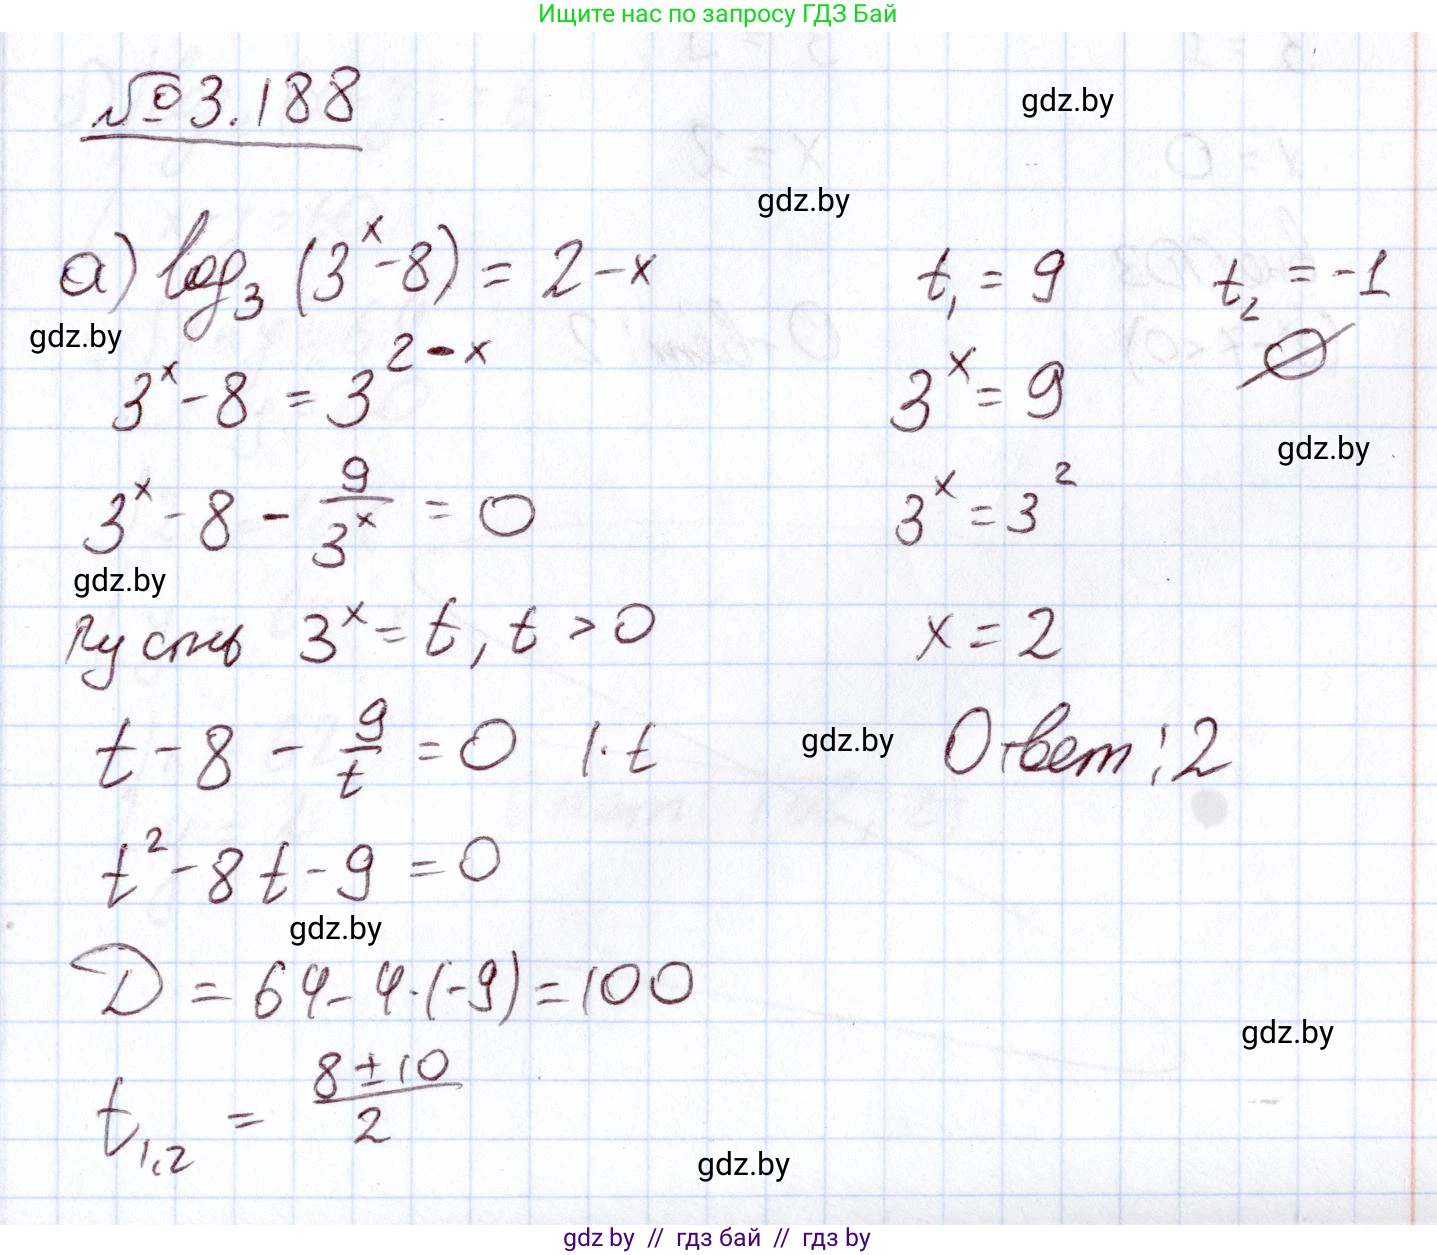 Ищите нас по запросу ГДЗ Бай
№3.188
gdz.by
gdz.by
а) log₃ (3ˣ-8) = 2-x
gdz.by
3ˣ-8 = 3²⁻ˣ
3ˣ-8 - 9/3ˣ = 0
gdz.by
Пусть 3ˣ = t, t > 0
t - 8 - 9/t = 0 |·t
t² - 8t - 9 = 0
gdz.by
D = 64 - 4·(-9) = 100
t₁,₂ = (8±10)/2
t₁ = 9 t₂ = -1
∅
3ˣ = 9
gdz.by
3ˣ = 3²
x = 2
gdz.by
Ответ: 2
gdz.by
gdz.by
gdz by // гдз бай // гдз by